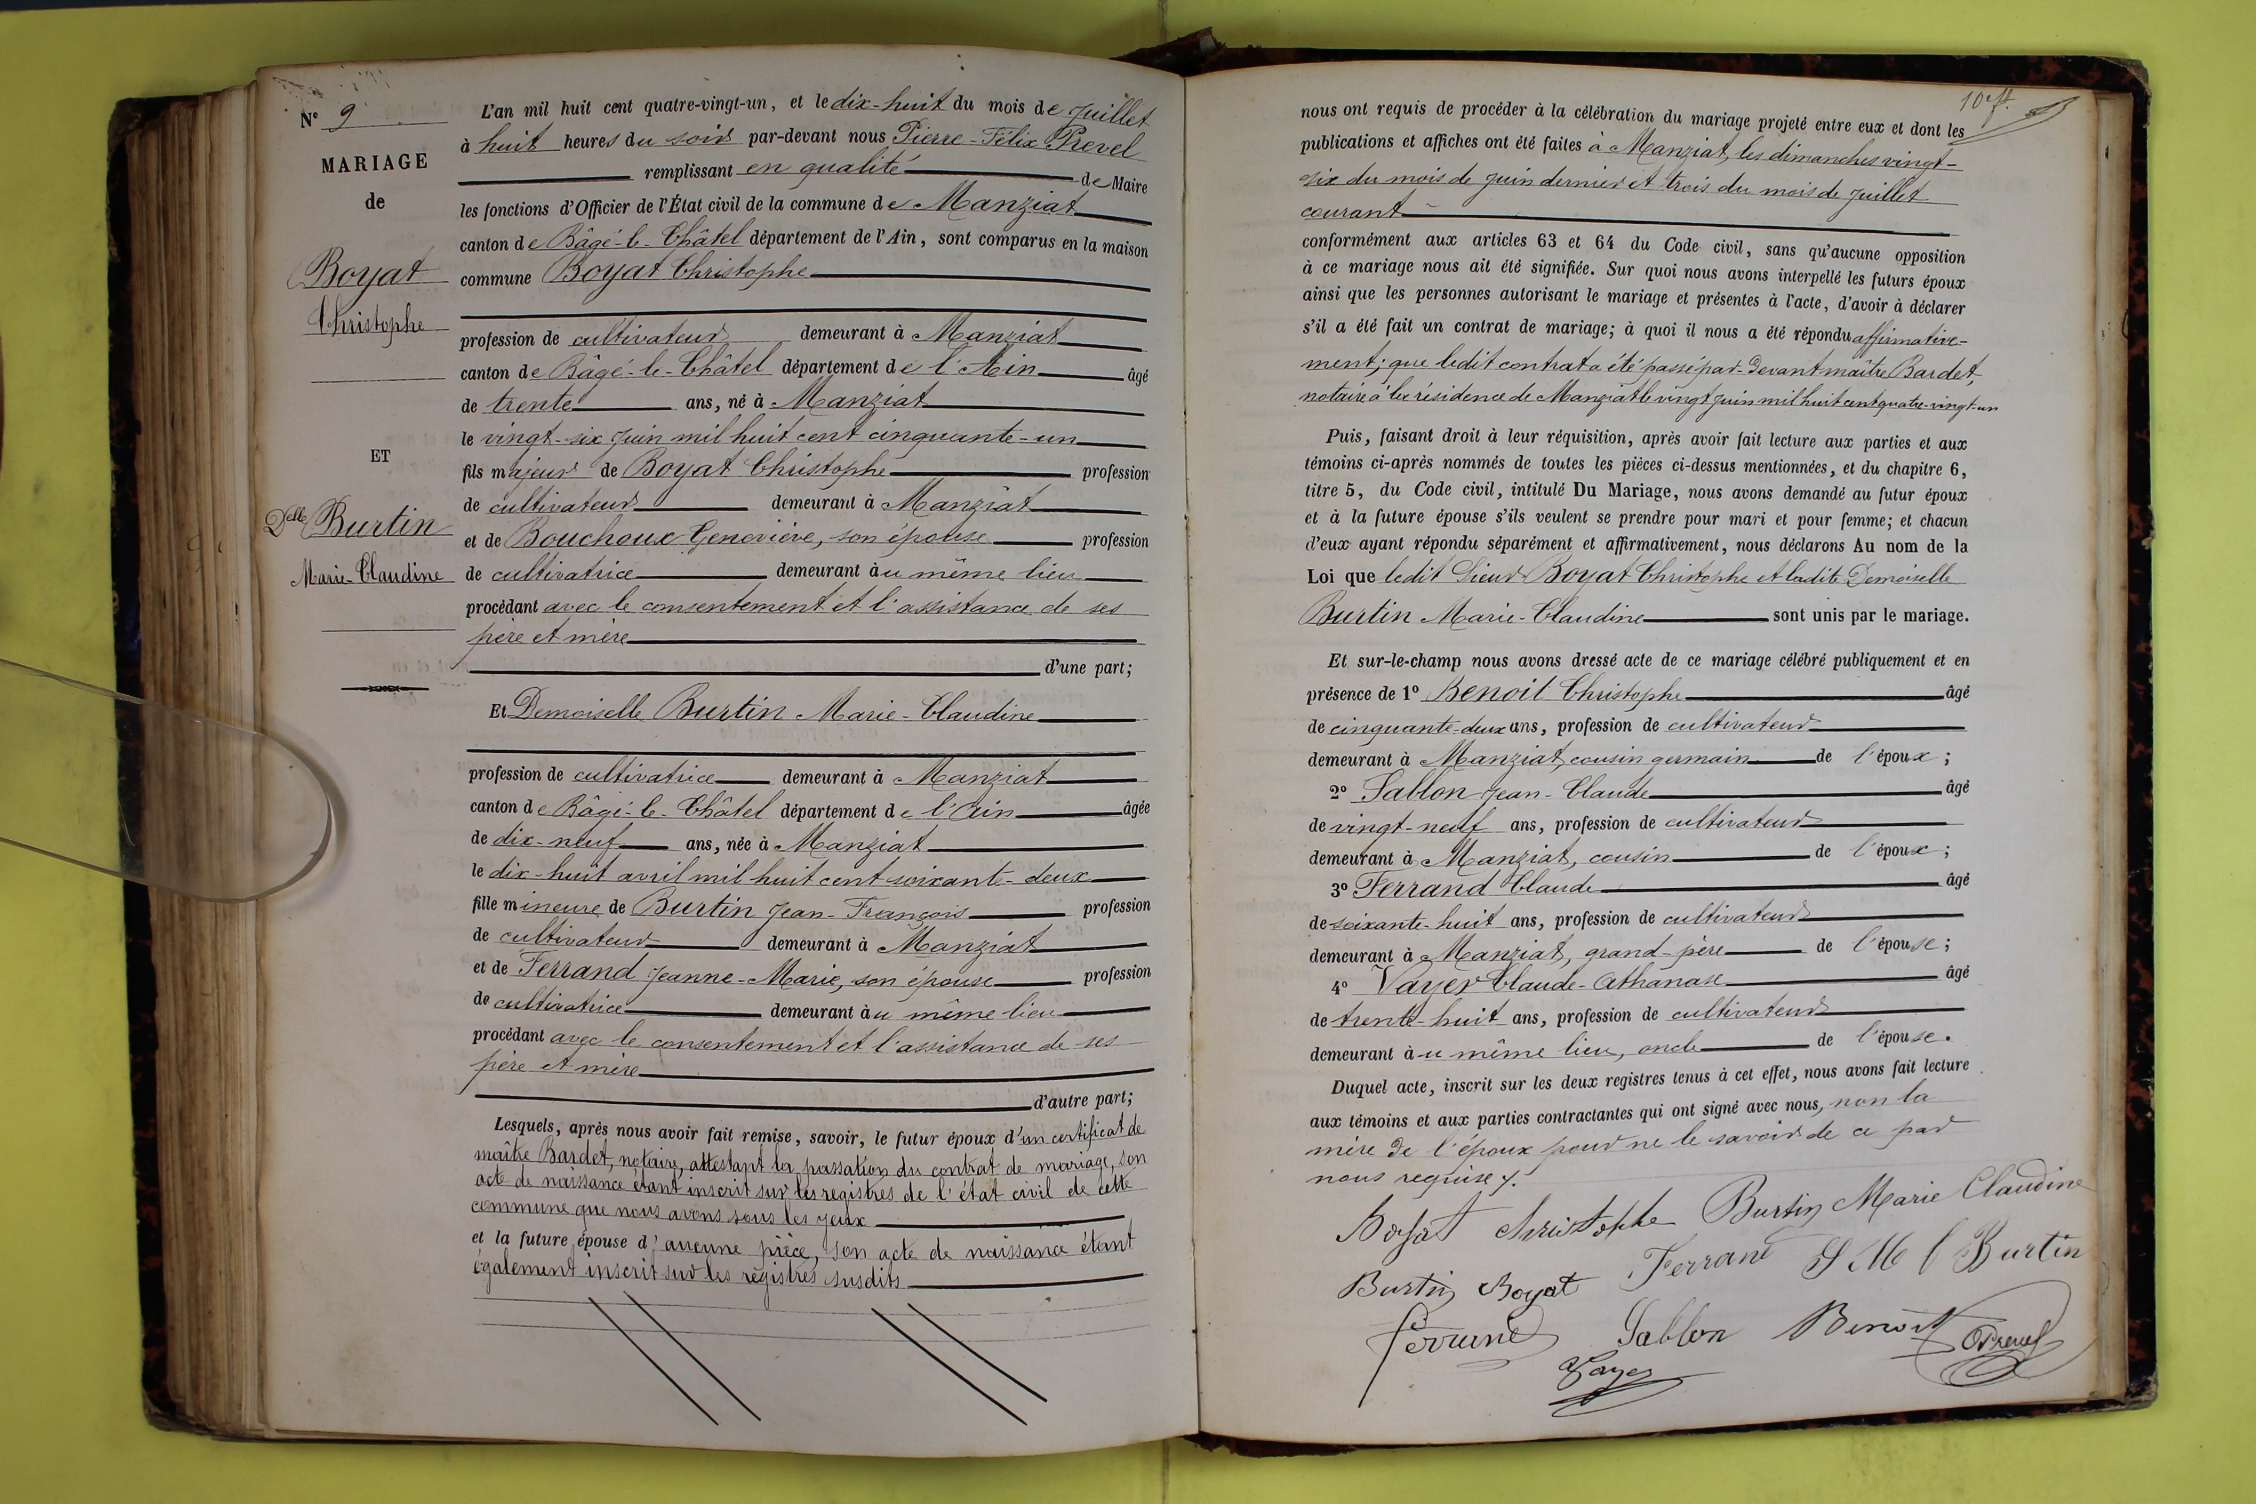 Nº 9
MARIAGE
de
Boyat
Christophe
ET
Delle Burtin
Marie-Claudine
L'an mil huit cent quatre-vingt-un, et le dix-huit du mois de Juillet
à huit heures du soir par-devant nous Pierre-Félix Prevel
remplissant en qualité de Maire
les fonctions d'Officier de l'État civil de la commune de Manziat
canton de Bâgé-le-Châtel département de l'Ain, sont comparus en la maison
commune Boyat Christophe
profession de cultivateur demeurant à Manziat
canton de Bâgé-le-Châtel département de l'Ain âgé
de trente ans, né à Manziat
le vingt-six Juin mil huit cent cinquante-un
fils majeur de Boyat Christophe profession
de cultivateur demeurant à Manziat
et de Bouchoux Geneviève, son épouse profession
de cultivatrice demeurant au même lieu
procédant avec le consentement et l'assistance de ses
père et mère
d'une part;
Et Demoiselle Burtin Marie-Claudine
profession de cultivatrice demeurant à Manziat
canton de Bâgé-le-Châtel département de l'Ain âgée
de dix-neuf ans, née à Manziat
le dix-huit avril mil huit cent soixante-deux
fille mineure de Burtin Jean-François profession
de cultivateur demeurant à Manziat
et de Ferrand Jeanne-Marie, son épouse profession
de cultivatrice demeurant au même lieu
procédant avec le consentement et l'assistance de ses
père et mère
d'autre part;
Lesquels, après nous avoir fait remise, savoir, le futur époux d'un certificat de
maître Bardet, notaire, attestant la passation du contrat de mariage, son
acte de naissance étant inscrit sur les registres de l'état civil de cette
commune que nous avons sous les yeux
et la future épouse d'aucune pièce, son acte de naissance étant
également inscrit sur les registres susdits
nous ont requis de procéder à la célébration du mariage projeté entre eux et dont les
publications et affiches ont été faites à Manziat, les dimanches vingt-
six du mois de Juin dernier et trois du mois de Juillet
courant
conformément aux articles 63 et 64 du Code civil, sans qu'aucune opposition
à ce mariage nous ait été signifiée. Sur quoi nous avons interpellé les futurs époux
ainsi que les personnes autorisant le mariage et présentes à l'acte, d'avoir à déclarer
s'il a été fait un contrat de mariage; à quoi il nous a été répondu affirmative-
ment; que ledit contrat a été passé par-devant maître Bardet,
notaire à la résidence de Manziat le vingt Juin mil huit cent quatre-vingt-un
Puis, faisant droit à leur réquisition, après avoir fait lecture aux parties et aux
témoins ci-après nommés de toutes les pièces ci-dessus mentionnées, et du chapitre 6,
titre 5, du Code civil, intitulé Du Mariage, nous avons demandé au futur époux
et à la future épouse s'ils veulent se prendre pour mari et pour femme; et chacun
d'eux ayant répondu séparément et affirmativement, nous déclarons Au nom de la
Loi que ledit Sieur Boyat Christophe et ladite Demoiselle
Burtin Marie-Claudine sont unis par le mariage.
Et sur-le-champ nous avons dressé acte de ce mariage célébré publiquement et en
présence de 1º Benoit Christophe âgé
de cinquante-deux ans, profession de cultivateur
demeurant à Manziat, cousin germain de l'époux;
2º Sablon Jean-Claude âgé
de vingt-neuf ans, profession de cultivateur
demeurant à Manziat, cousin de l'époux;
3º Ferrand Claude âgé
de soixante-huit ans, profession de cultivateur
demeurant à Manziat, grand-père de l'épouse;
4º Vayer Claude-Athanase âgé
de trente-huit ans, profession de cultivateur
demeurant au même lieu, oncle de l'épouse.
Duquel acte, inscrit sur les deux registres tenus à cet effet, nous avons fait lecture
aux témoins et aux parties contractantes qui ont signé avec nous, non la
mère de l'époux pour ne le savoir de ce par
nous requise.
Boyat Christophe Burtin Marie Claudine
Burtin Boyat Ferrand J M f Burtin
Ferrand Sablon Benoit Prevel
Vayer